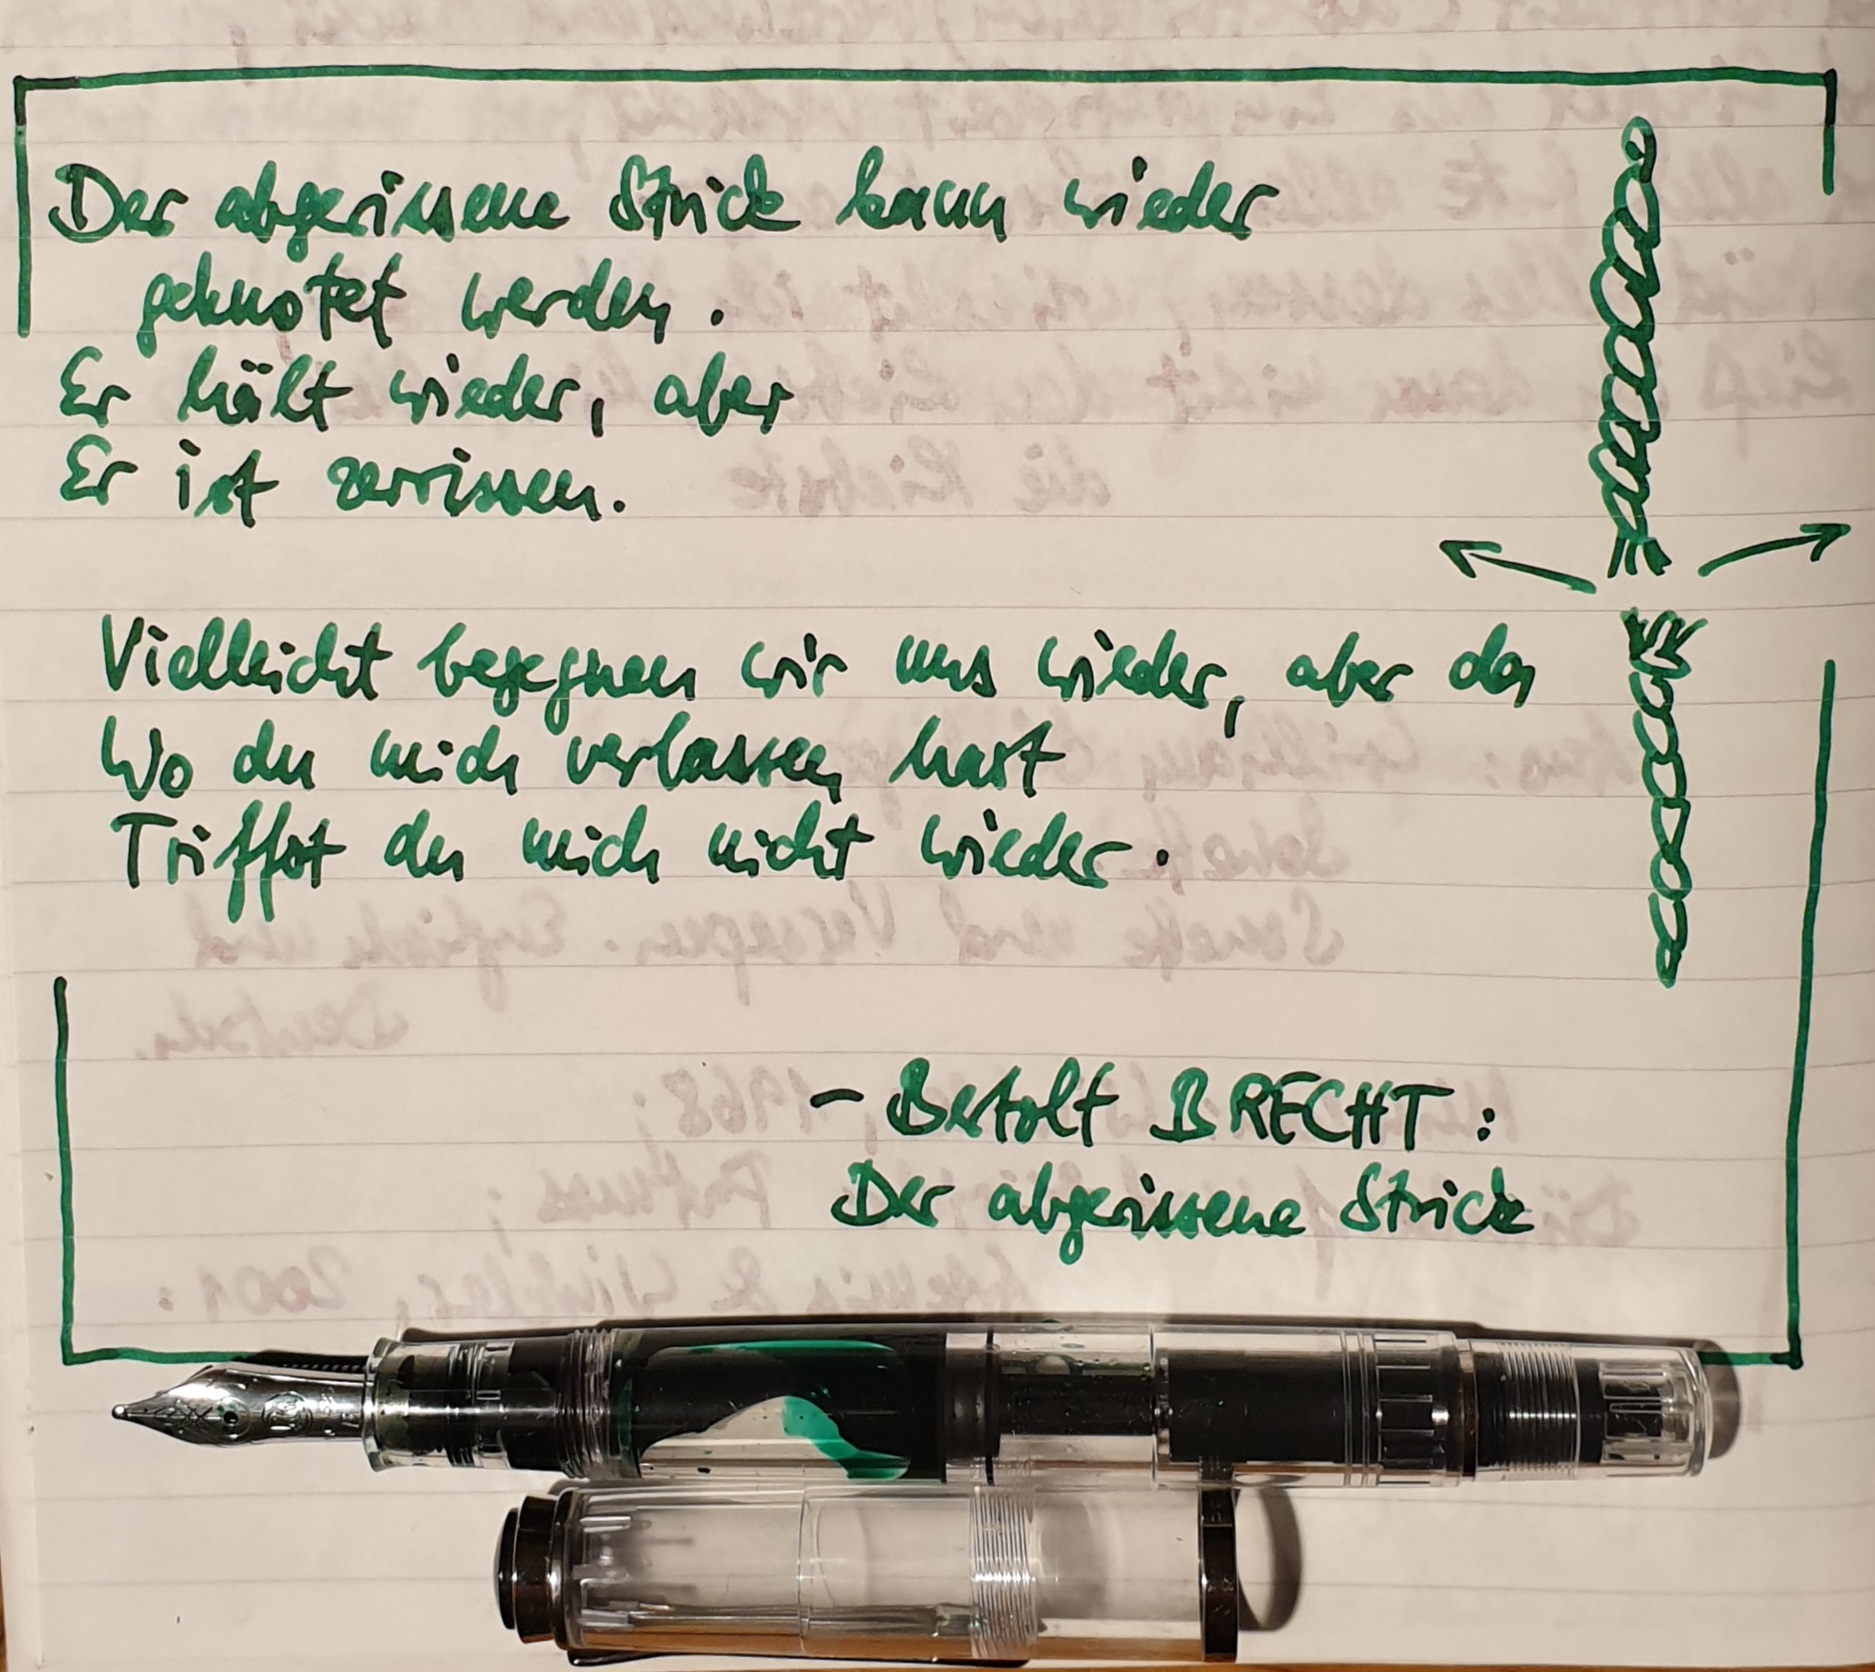 Der abgerissene Strick kann wieder
geknotet werden.
Er hält wieder, aber
Er ist zerrissen.
Vielleicht begegnen wir uns wieder, aber da
Wo du mich verlassen hast
Triffst du mich nicht wieder.
- Bertolt BRECHT:
Der abgerissene Strick